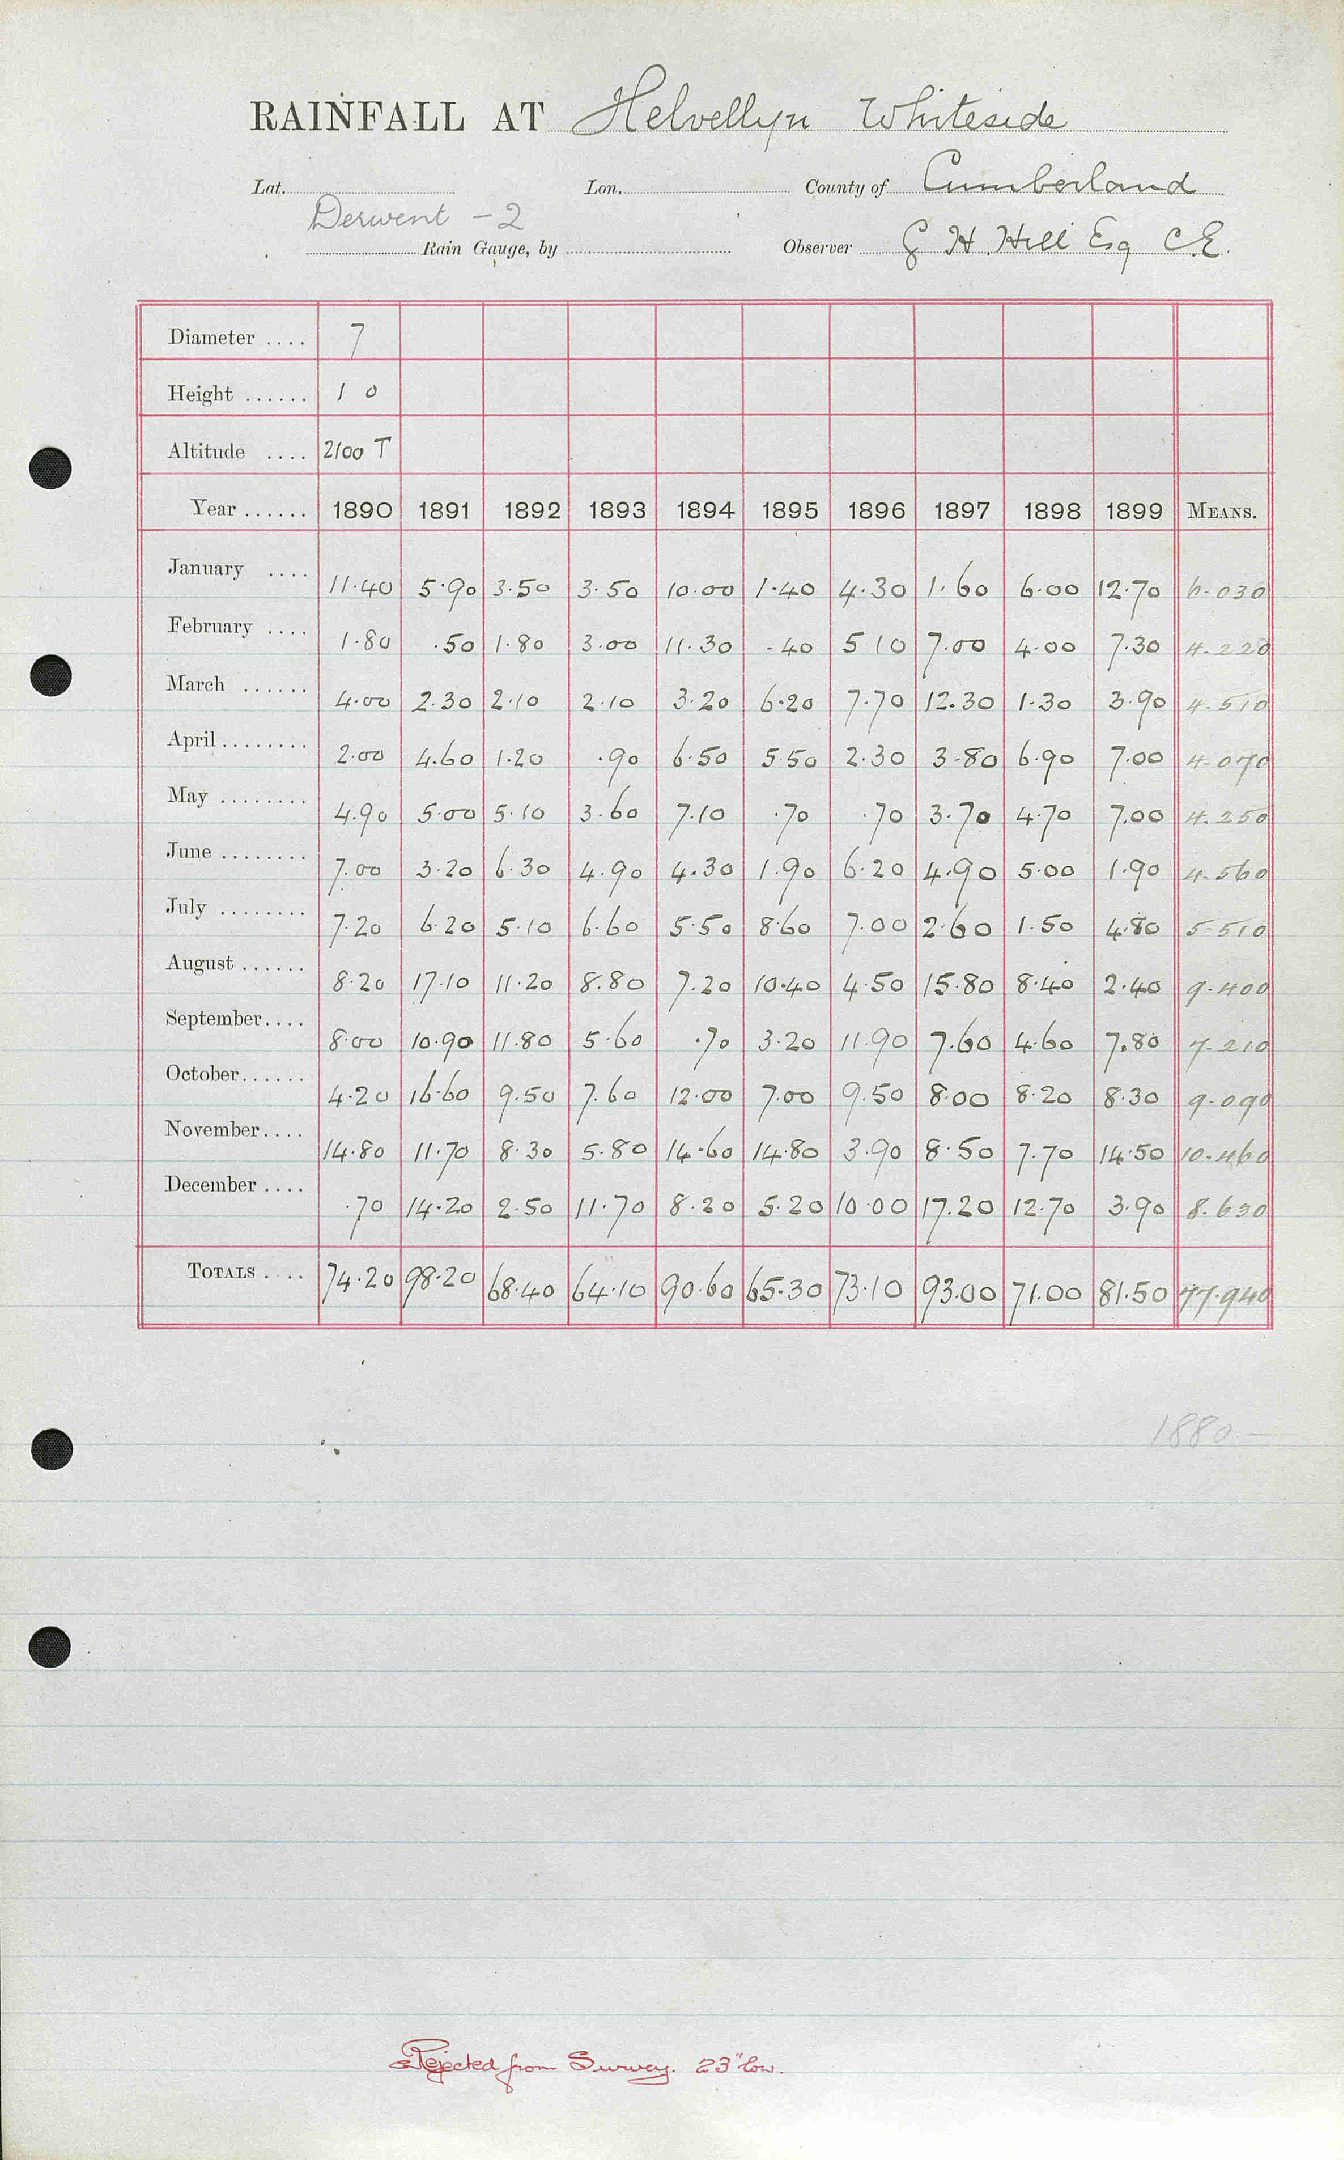 RAINFALL AT Helvellyn Whiteside
Lat. Lon. County of Cumberland
Derwent - 2
Rain Gauge, by Observer G H Hill Esq C.E.
Diameter .... 7
Height ...... 1 0
Altitude .... 2100 T
Year ...... 1890 1891 1892 1893 1894 1895 1896 1897 1898 1899 MEANS.
January .... 11.40 5.90 3.50 3.50 10.00 1.40 4.30 1.60 6.00 12.70 6.030
February .... 1.80 .50 1.80 3.00 11.30 .40 5 10 7.00 4.00 7.30 4.220
March ...... 4.00 2.30 2.10 2.10 3.20 6.20 7.70 12.30 1.30 3.90 4.510
April ........ 2.00 4.60 1.20 .90 6.50 5.50 2.30 3.80 6.90 7.00 4.070
May ........ 4.90 5.00 5.10 3.60 7.10 .70 .70 3.70 4.70 7.00 4.250
June ........ 7.00 3.20 6.30 4.90 4.30 1.90 6.20 4.90 5.00 1.90 4.560
July ........ 7.20 6.20 5.10 6.60 5.50 8.60 7.00 2.60 1.50 4.80 5.510
August ...... 8.20 17.10 11.20 8.80 7.20 10.40 4.50 15.80 8.40 2.40 9.400
September.... 8.00 10.90 11.80 5.60 .70 3.20 11.90 7.60 4.60 7.80 7.210
October...... 4.20 16.60 9.50 7.60 12.00 7.00 9.50 8.00 8.20 8.30 9.090
November.... 14.80 11.70 8.30 5.80 14.60 14.80 3.90 8.50 7.70 14.50 10.460
December .... .70 14.20 2.50 11.70 8.20 5.20 10.00 17.20 12.70 3.90 8.630
TOTALS .... 74.20 98.20 68.40 64.10 90.60 65.30 73.10 93.00 71.00 81.50 77.940
1880 -
Rejected from Survey. 23" low.